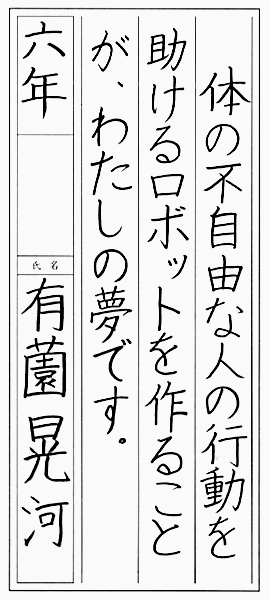 体の不自由な人の行動を
助けるロボットを作ること
が、わたしの夢です。
六年
氏名
有薗晃河